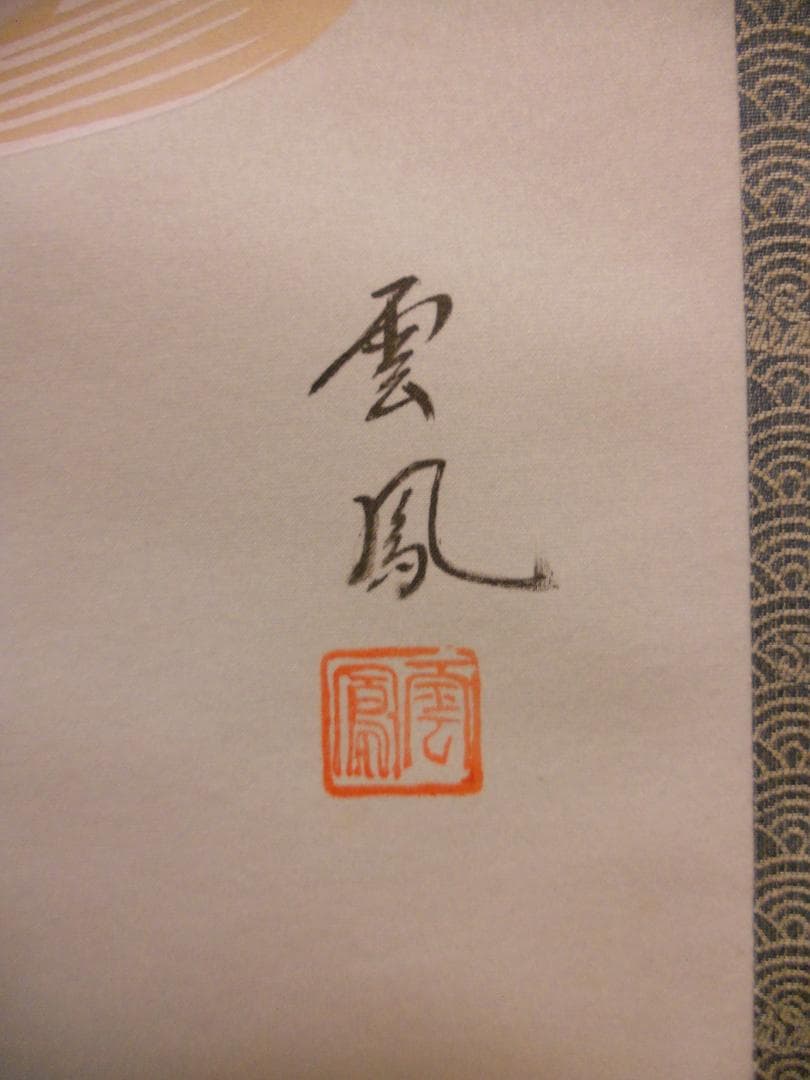 雲鳳
雲鳳